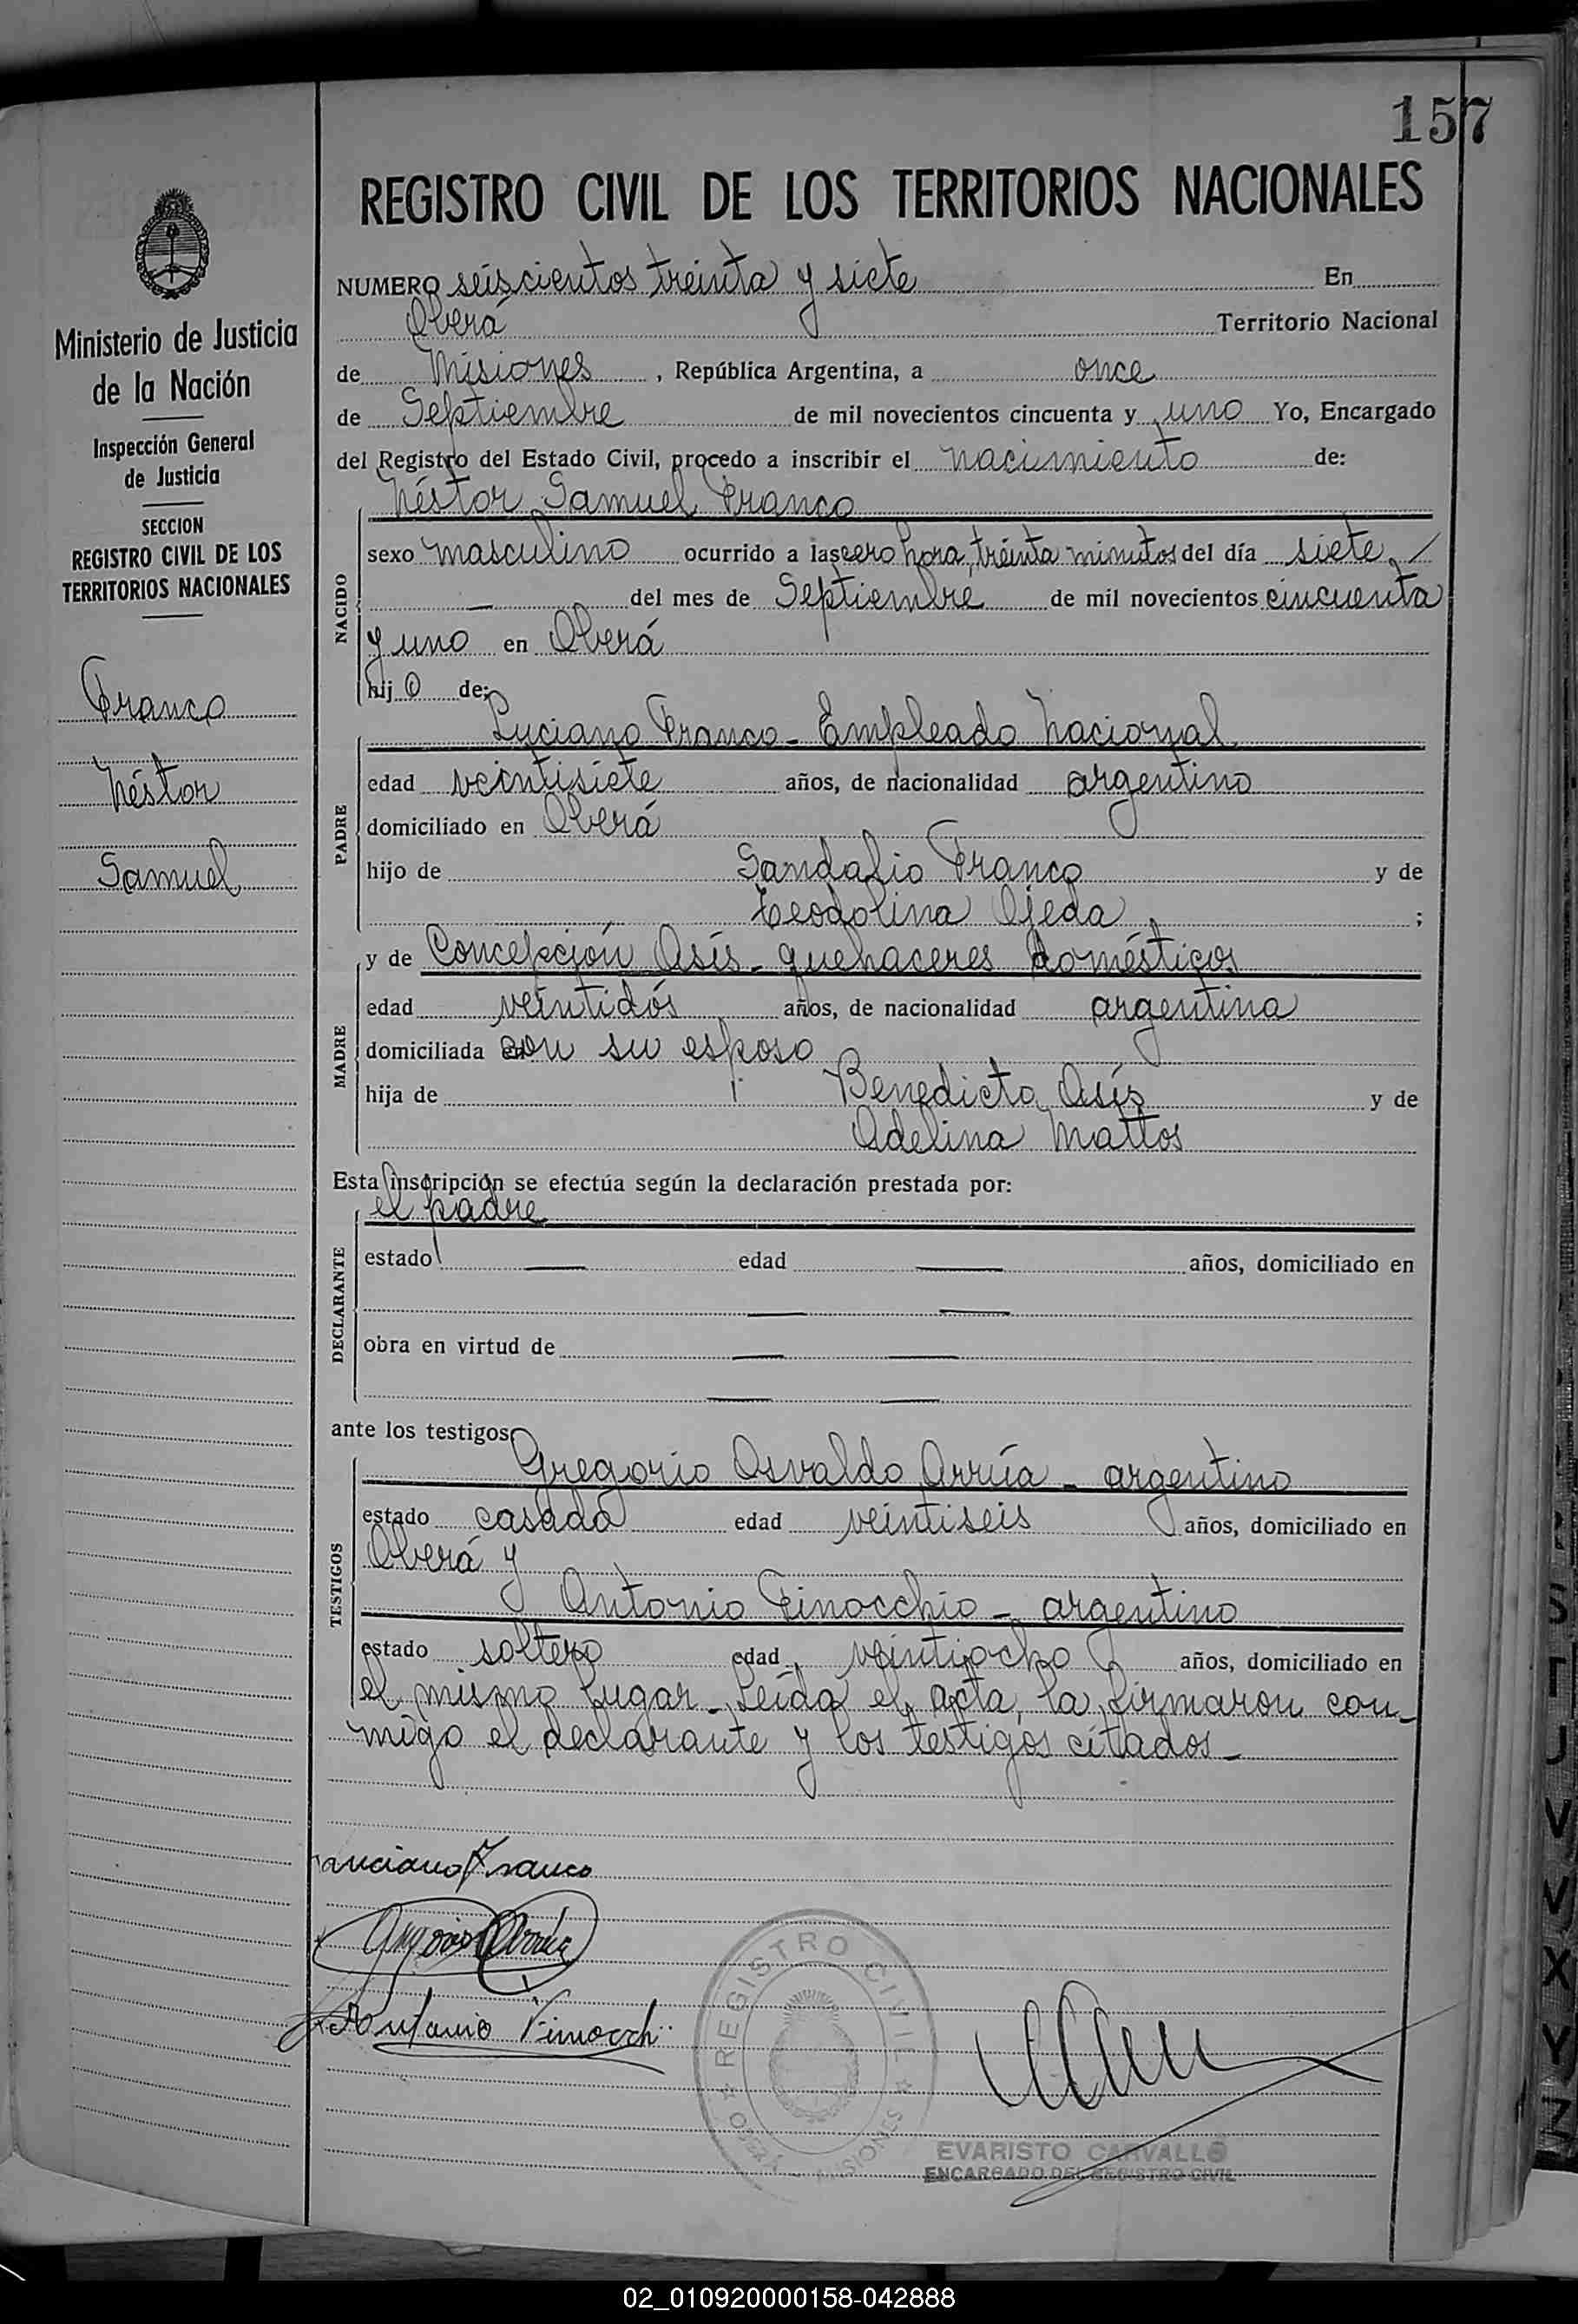 157
REGISTRO CIVIL DE LOS TERRITORIOS NACIONALES
Ministerio de Justicia
de la Nación
Inspección General
de Justicia
SECCION
REGISTRO CIVIL DE LOS
TERRITORIOS NACIONALES
Franco
Néstor
Samuel
NUMERO seiscientos treinta y siete En
Oberá Territorio Nacional
de Misiones, República Argentina, a once
de Septiembre de mil novecientos cincuenta y uno Yo, Encargado
del Registro del Estado Civil, procedo a inscribir el nacimiento de:
NACIDO
Néstor Samuel Franco
sexo masculino ocurrido a las cero hora, treinta minutos del día siete
del mes de Septiembre de mil novecientos cincuenta
y uno en Oberá
hijo de:
PADRE
Luciano Franco - Empleado Nacional
edad veintisiete años, de nacionalidad argentino
domiciliado en Oberá
hijo de Sandalio Franco y de
Teodolina Ojeda ;
MADRE
y de Concepción Asís - quehaceres domésticos
edad veintidós años, de nacionalidad argentina
domiciliada con su esposo
hija de Benedicto Asís y de
Adelina Mattos
Esta inscripción se efectúa según la declaración prestada por:
DECLARANTE
el padre
estado — edad — años, domiciliado en
— —
obra en virtud de — —
— —
ante los testigos
TESTIGOS
Gregorio Osvaldo Arrúa - argentino
estado casado edad veintiseis años, domiciliado en
Oberá y
Antonio Finocchio - argentino
estado soltero edad veintiocho años, domiciliado en
el mismo lugar - Leída el acta, la firmaron con-
migo el declarante y los testigos citados -
Luciano Franco
Antonio Finocchi
REGISTRO CIVIL
OBERÁ - MISIONES
EVARISTO CARVALLO
ENCARGADO DEL REGISTRO CIVIL
S
T
U
V
X
Y
Z
02_010920000158-042888